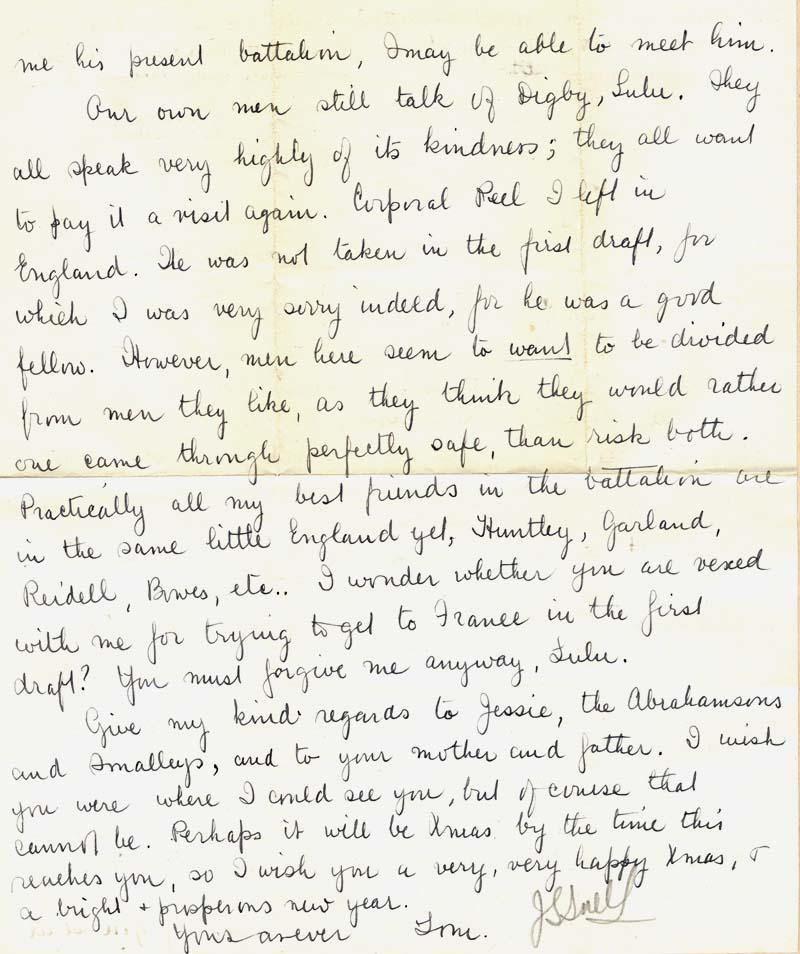 me his present battalion, I may be able to meet him.
Our own men still talk of Digby, Lulu. They
all speak very highly of its kindness; they all want
to pay it a visit again. Corporal Peel I left in
England. He was not taken in the first draft, for
which I was very sorry indeed, for he was a good
fellow. However, men here seem to want to be divided
from men they like, as they think they would rather
one came through perfectly safe, than risk both.
Practically all my best friends in the battalion are
in the same little England yet, Huntley, Garland,
Reidell, Bowes, etc.. I wonder whether you are vexed
with me for trying to get to France in the first
draft? You must forgive me anyway, Lulu.
Give my kind regards to Jessie, the Abrahamsons
and Smalleys, and to your mother and father. I wish
you were where I could see you, but of course that
cannot be. Perhaps it will be Xmas by the time this
reaches you, so I wish you a very, very happy Xmas, &
a bright + prosperous new year.
Yours as ever Tom.